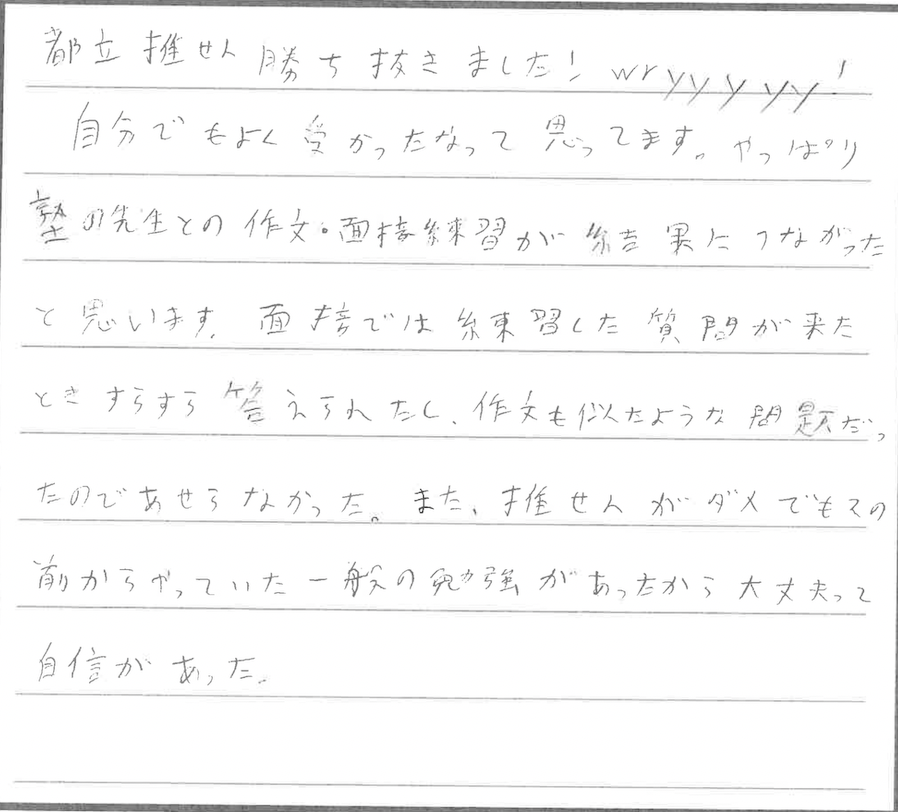 都立推せん勝ち抜きました! wryyyyy!
自分でもよく受かったなって思ってます。やっぱり
塾の先生との作文・面接練習が結果につながった
と思います。面接では練習した質問が来た
ときすらすら答えられたし、作文も似たような問題だっ
たのであせらなかった。また、推せんがダメでもその
前からやっていた一般の勉強があったから大丈夫って
自信があった。